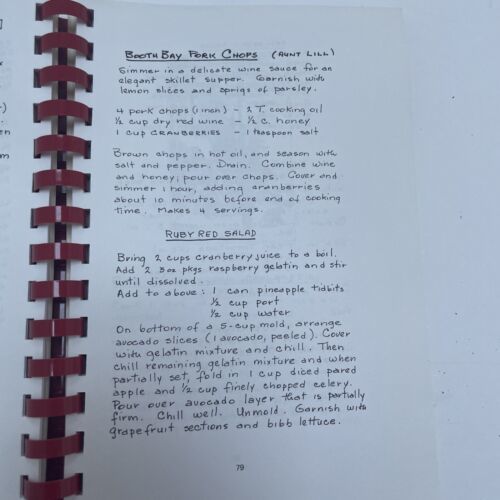 BOOTH BAY PORK CHOPS (AUNT LILL)
Simmer in a delicate wine sauce for an
elegant skillet supper. Garnish with
lemon slices and sprigs of parsley.
4 pork chops (1 inch) - 2 T. cooking oil
½ cup dry red wine - ½ c. honey
1 cup CRANBERRIES - 1 teaspoon salt
Brown chops in hot oil, and season with
salt and pepper. Drain. Combine wine
and honey; pour over chops. Cover and
simmer 1 hour, adding cranberries
about 10 minutes before end of cooking
time. Makes 4 servings.
RUBY RED SALAD
Bring 2 cups cranberry juice to a boil.
Add 2 3oz pkgs raspberry gelatin and stir
until dissolved.
Add to above: 1 can pineapple tidbits
½ cup port
½ cup water
On bottom of a 5-cup mold, arrange
avocado slices (1 avocado, peeled). Cover
with gelatin mixture and chill. Then
chill remaining gelatin mixture and when
partially set, fold in 1 cup diced pared
apple and ½ cup finely chopped celery.
Pour over avocado layer that is partially
firm. Chill well. Unmold. Garnish with
grapefruit sections and bibb lettuce.
79